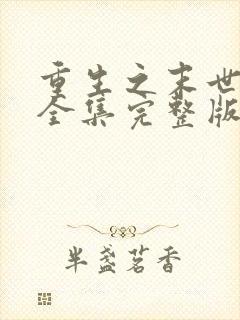 重生之末世
全集完整版
半盏茗香